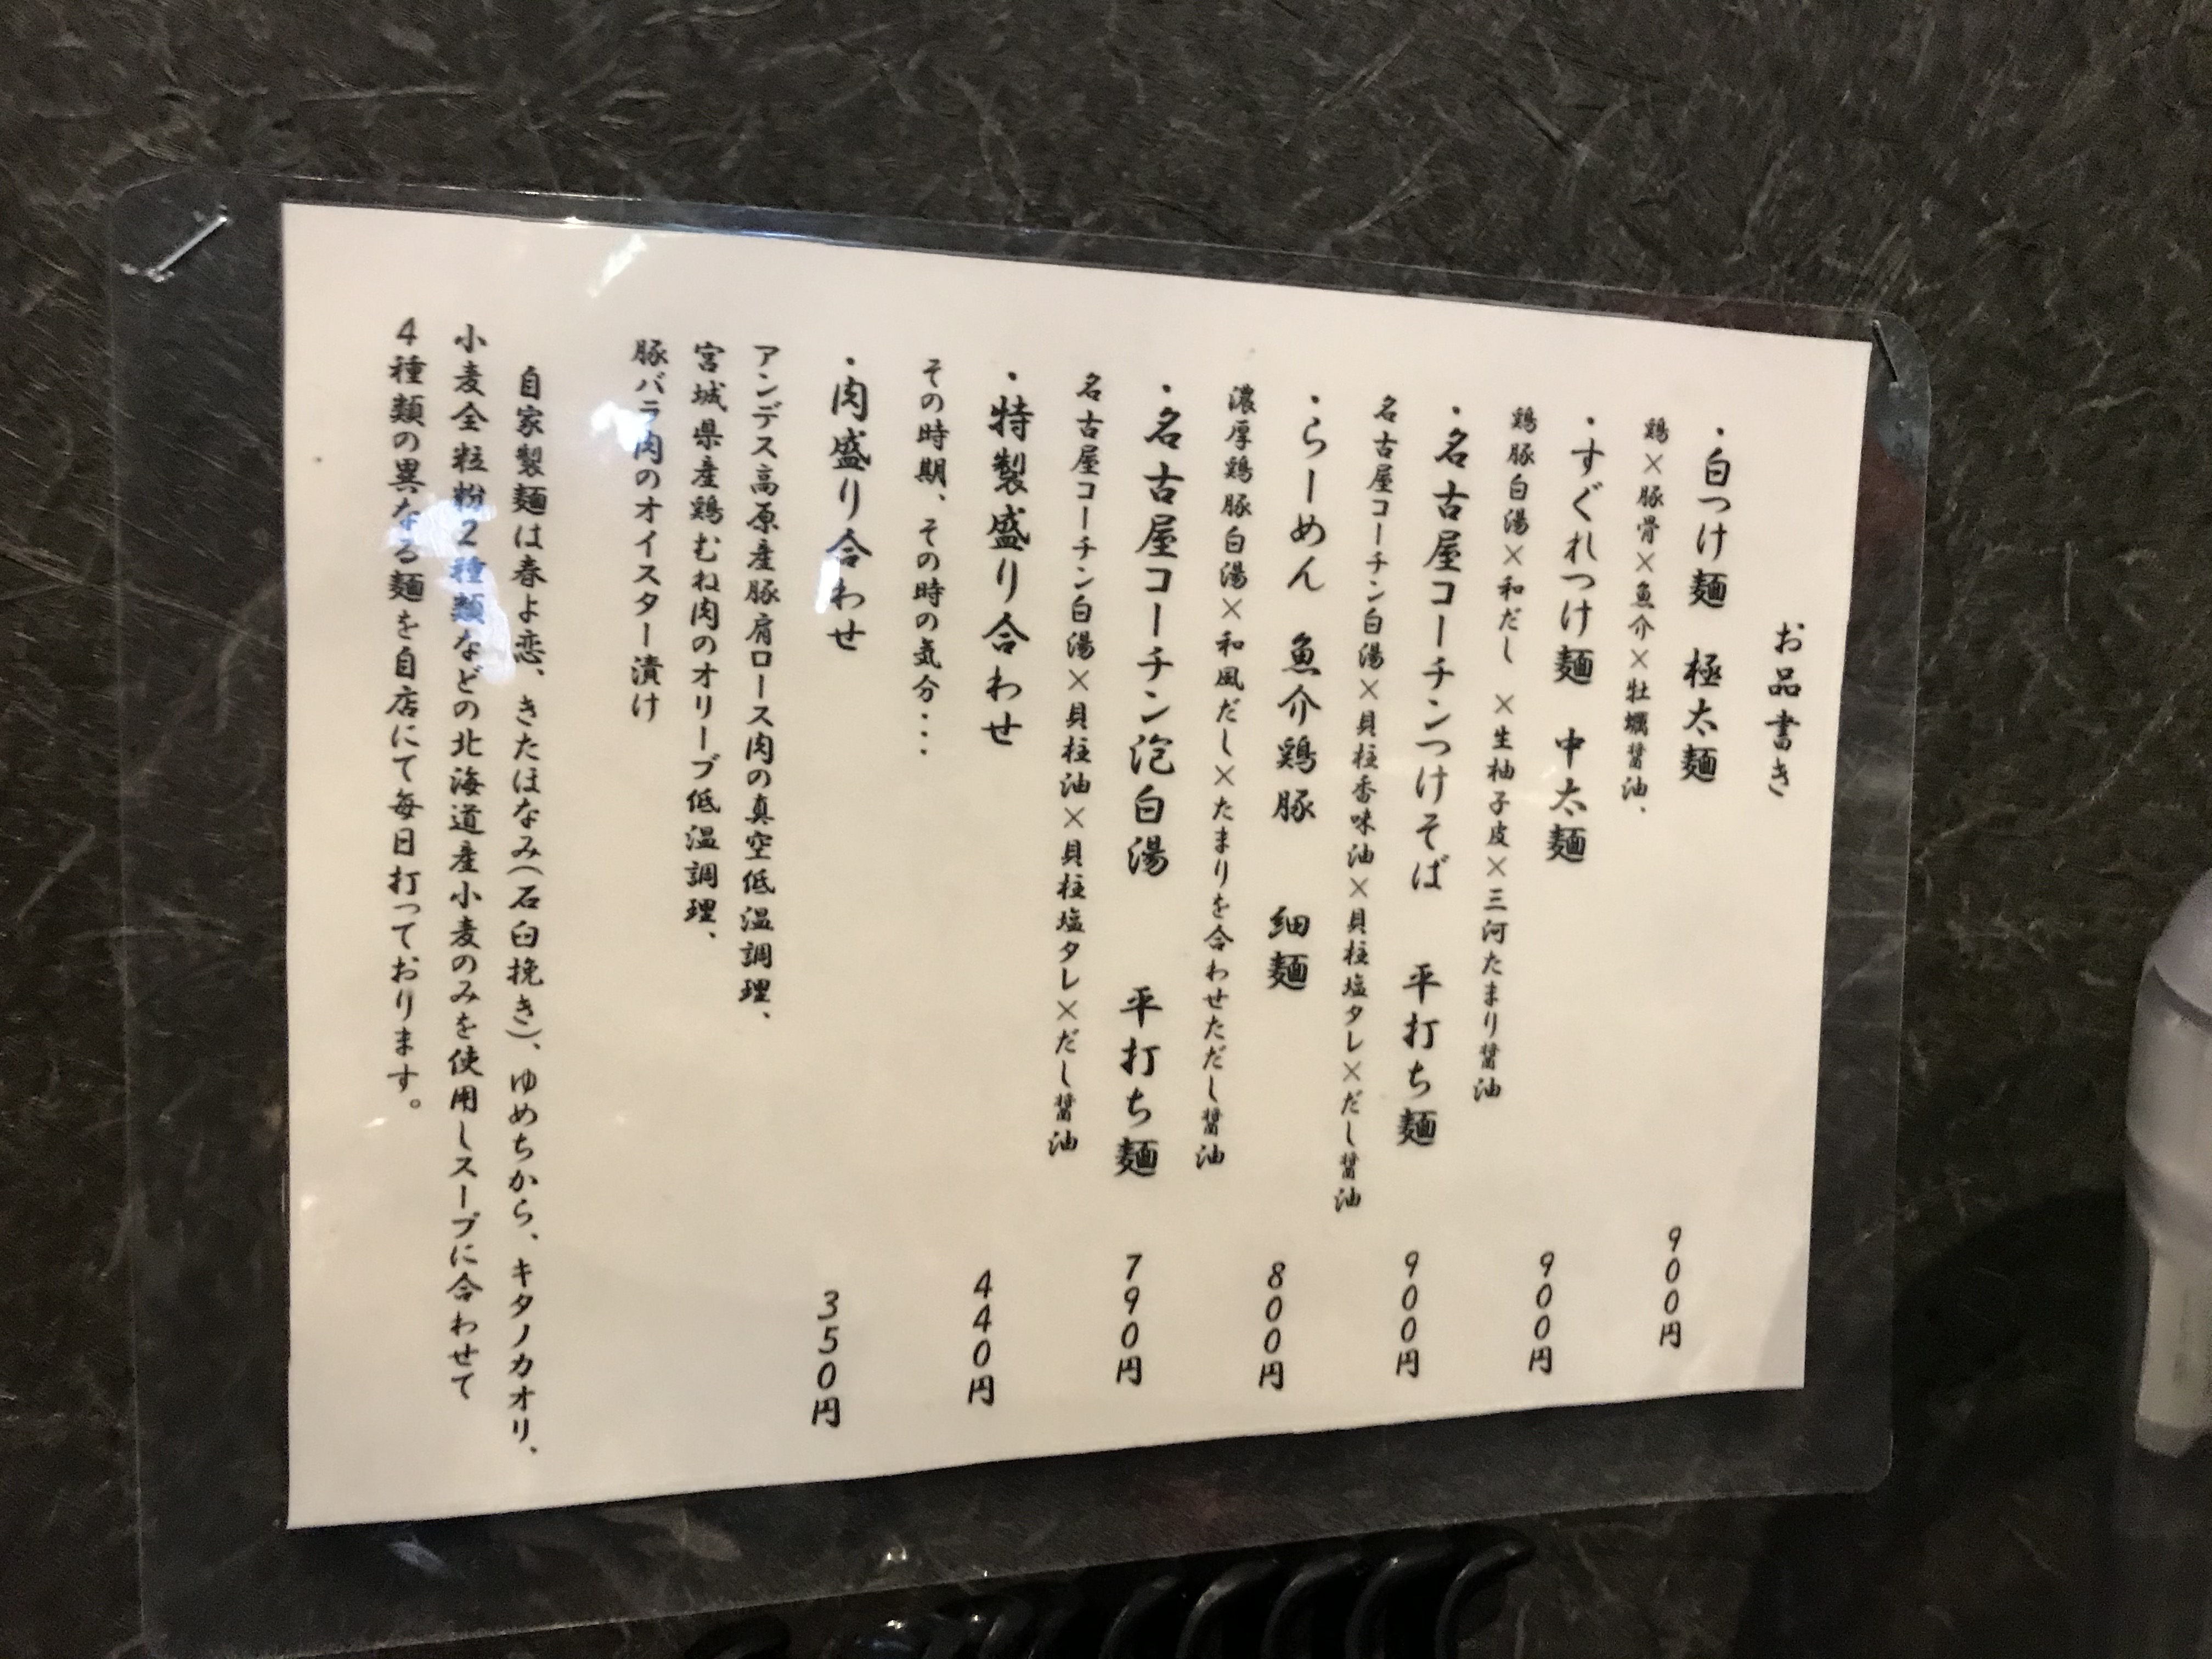 お品書き
・白つけ麺 極太麺 900円
鶏×豚骨×魚介×牡蠣醤油、
・すぐれつけ麺 中太麺 900円
鶏豚白湯×和だし ×生柚子皮×三河たまり醤油
・名古屋コーチンつけそば 平打ち麺 900円
名古屋コーチン白湯×貝柱香味油×貝柱塩タレ×だし醤油
・らーめん 魚介鶏豚 細麺 800円
濃厚鶏豚白湯×和風だし×たまりを合わせただし醤油
・名古屋コーチン泡白湯 平打ち麺 790円
名古屋コーチン白湯×貝柱油×貝柱塩タレ×だし醤油
・特製盛り合わせ 440円
その時期、その時の気分・・・
・肉盛り合わせ 350円
アンデス高原産豚肩ロース肉の真空低温調理、
宮城県産鶏むね肉のオリーブ低温調理、
豚バラ肉のオイスター漬け
自家製麺は春よ恋、きたほなみ(石臼挽き)、ゆめちから、キタノカオリ、
小麦全粒粉2種類などの北海道産小麦のみを使用しスープに合わせて
4種類の異なる麺を自店にて毎日打っております。